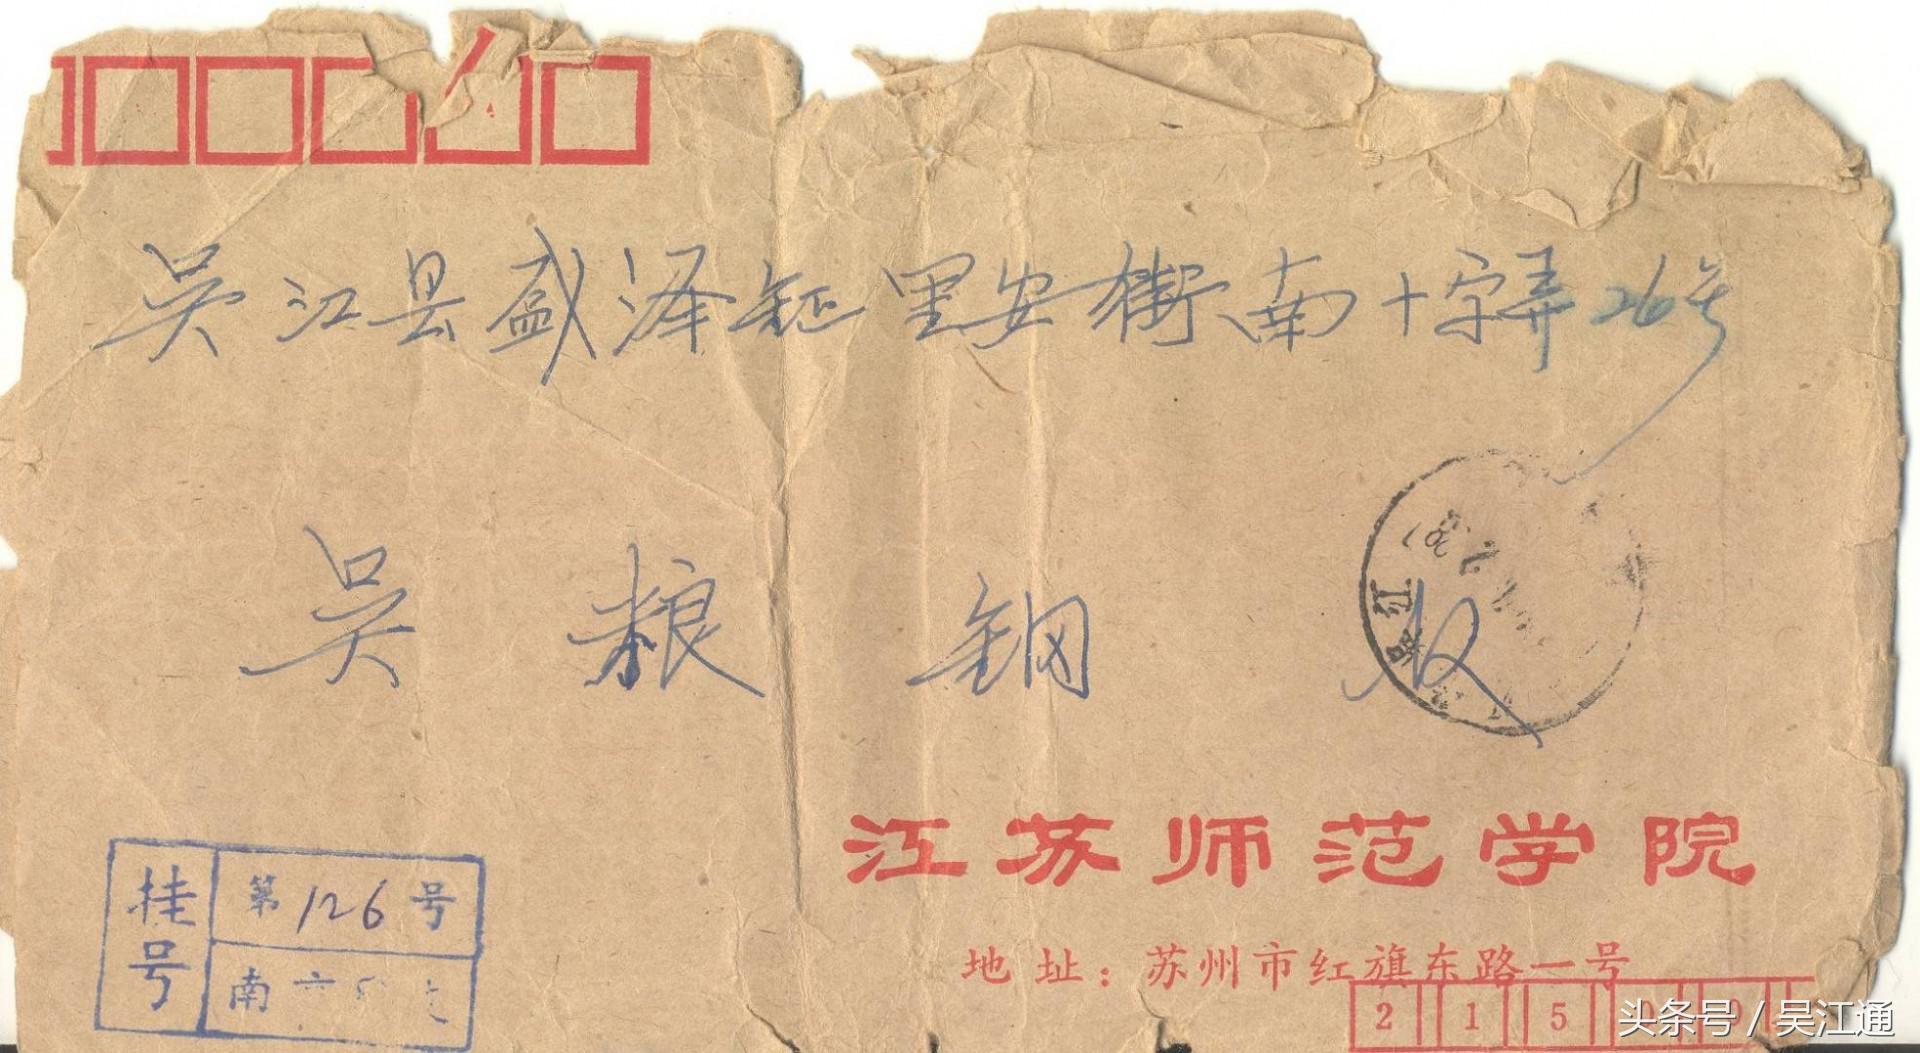 吴江县盛泽镇里安街南十字弄26号
吴粮钢 收
吴江
江苏师范学院
地址：苏州市红旗东路一号
挂号
第126号
南
215
头条号 / 吴江通